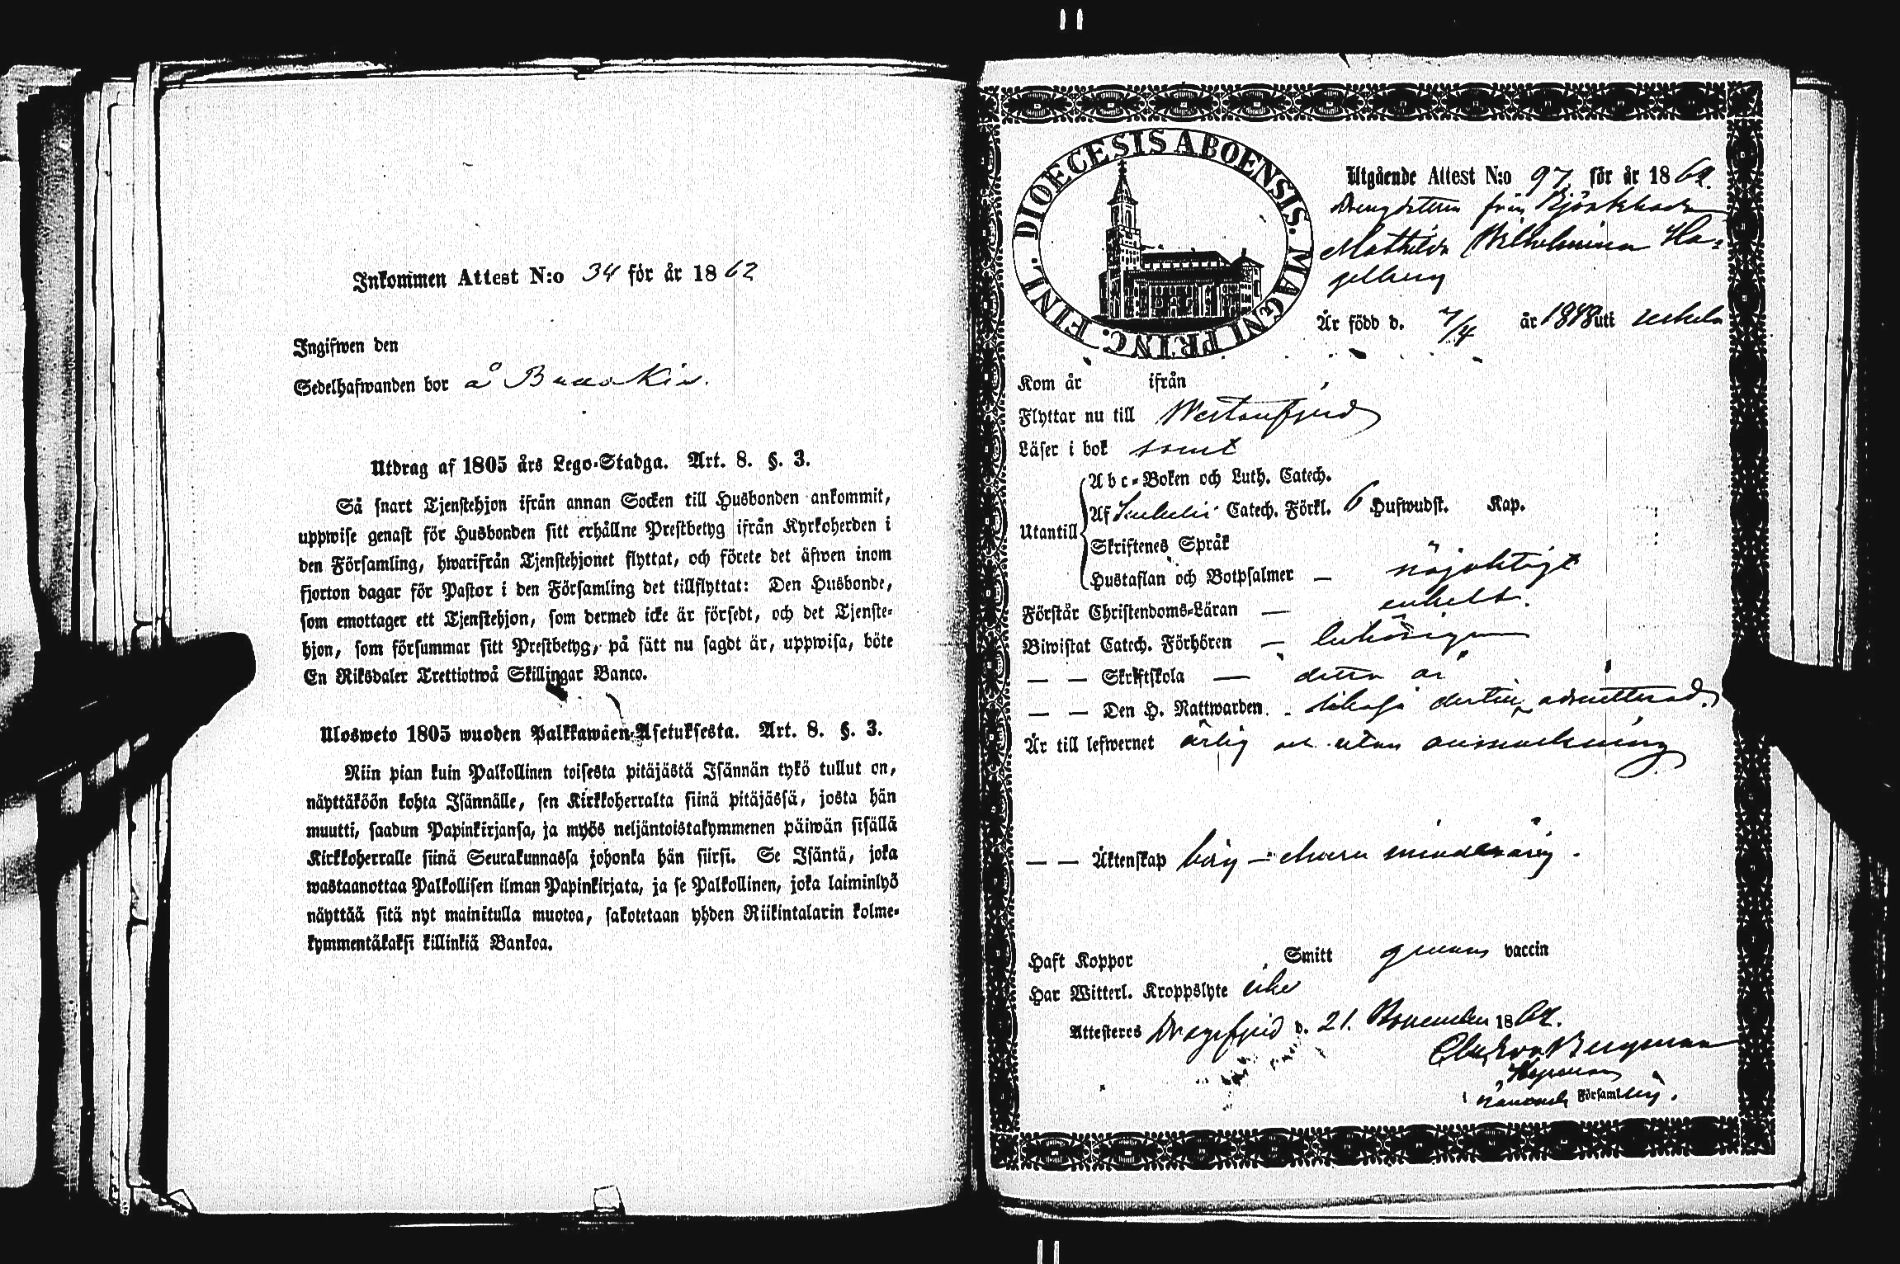 Inkommen Attest N:o 34 för år 1862
Ingifwen den
Sedelhafwanden bor å
Utdrag af 1805 års Lego-Stadga. Art. 8. §. 3.
Så snart Tjenstehjon ifrån annan Socken till Husbonden ankommit,
uppwise genast för Husbonden sitt erhållne Prestbetyg ifrån Kyrkoherden i
den Församling, hwarifrån Tjenstehjonet flyttat, och förete det äfwen inom
fjorton dagar för Pastor i den Församling det tillflyttat: Den Husbonde,
som emottager ett Tjenstehjon, som dermed icke är försedt, och det Tjenste-
hjon, som försummar sitt Prestbetyg, på sätt nu sagdt är, uppwisa, böte
En Riksdaler Trettiotwå Skillingar Banco.
Ulosweto 1805 wuoden Palkkawäen-Asetuksesta. Art. 8. §. 3.
Niin pian kuin Palkollinen toisesta pitäjästä Isännän tykö tullut on,
näyttäköön kohta Isännälle, sen Kirkkoherralta siinä pitäjässä, josta hän
muutti, saadun Papinkirjansa, ja myös neljäntoistakymmenen päiwän sisällä
Kirkkoherralle siinä Seurakunnassa johonka hän siirsi. Se Isäntä, joka
wastaanottaa Palkollisen ilman Papinkirjata, ja se Palkollinen, joka laiminlyö
näyttää sitä nyt mainitulla muotoa, sakotetaan yhden Riikintalarin kolme-
kymmentäkaksi killinkiä Bankoa.
DIOECESIS ABOENSIS. MAGNI PRINC. FINL.
Utgående Attest N:o 97 för år 1862.
från
Mathilda Wilhelmina Ha-
gelberg
Är född d. 7/4 år 1848 uti
Kom år ifrån
Flyttar nu till Westanfjerd
Läser i bok samt
Utantill
Abc-Boken och Luth. Catech.
Af Catech. Förkl. 6 Hufwudst. Kap.
Skriftenes Språk
Hustaflan och Botpsalmer — nöjaktigt
Förstår Christendoms-Läran — enkelt.
Biwistat Catech. Förhören —
— — Skriftskola — detta år
— — Den H. Nattwarden admitterad.
Är till lefwernet ärlig och utan anmärkning
— — Äktenskap minderårig.
Haft Koppor Smitt genom vaccin
Har Witterl. Kroppslyte icke
Attesteras Dragsfjerd d. 21. November 1862.
Bergman
Församling.